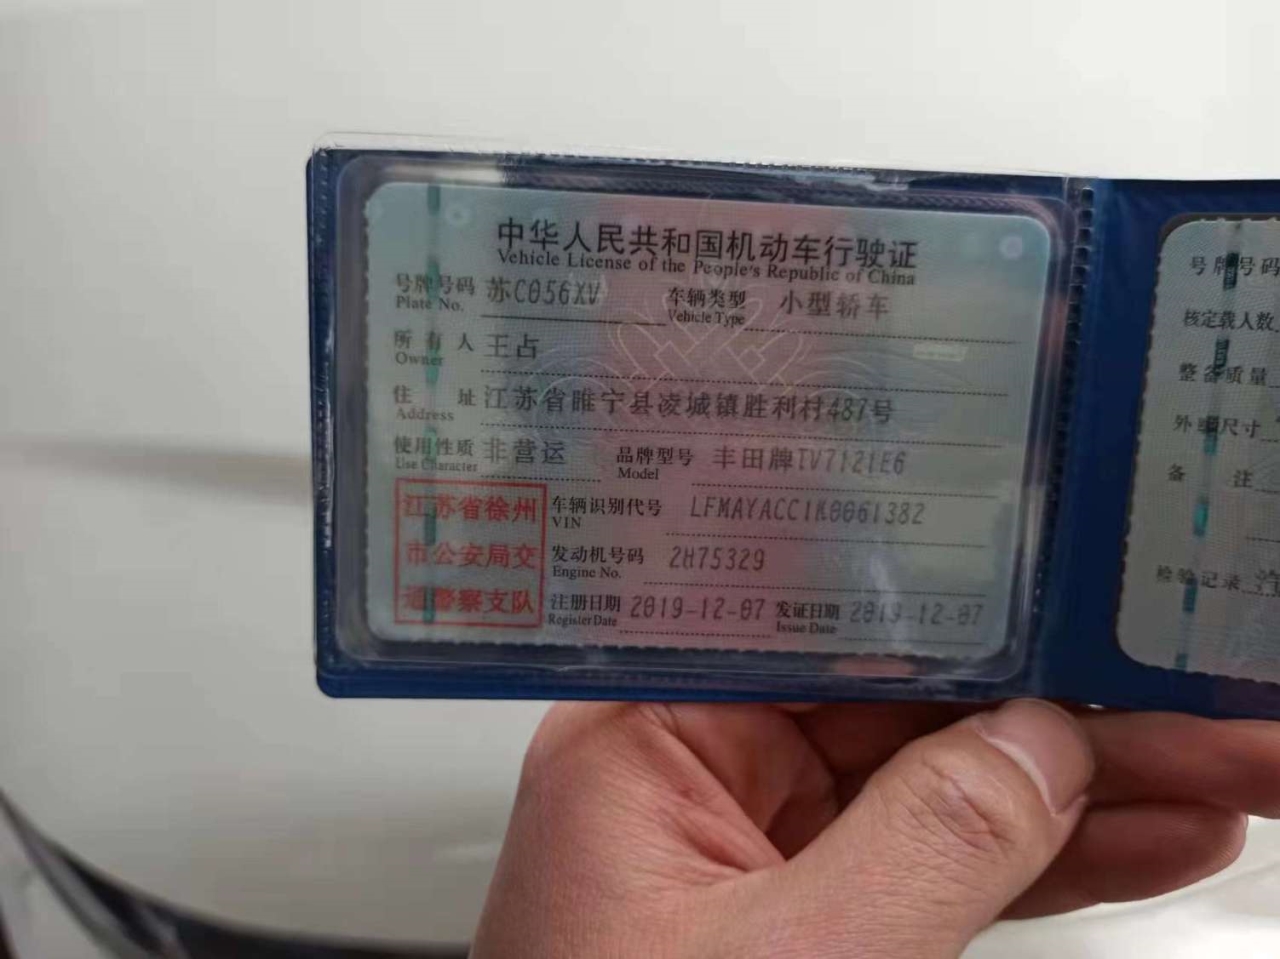 中华人民共和国机动车行驶证
Vehicle License of the People's Republic of China
号牌号码 苏C056XV 车辆类型 小型轿车
Plate No. Vehicle Type
所有人 王占
Owner
住址 江苏省睢宁县凌城镇胜利村487号
Address
使用性质 非营运 品牌型号 丰田牌TV7121E6
Use Character Model
江苏省徐州
市公安局交
通警察支队
车辆识别代号 LFMAYACC1K0061382
VIN
发动机号码 2H75329
Engine No.
注册日期 2019-12-07 发证日期 2019-12-07
Register Date Issue Date
号牌号码
核定载人数
整备质量
外廓尺寸
备注
检验记录